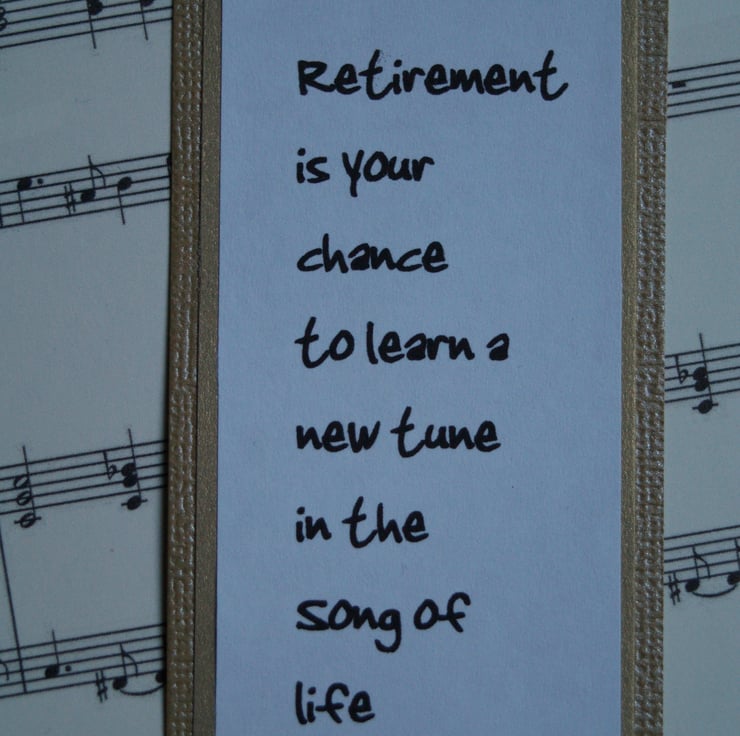 Retirement
is your
chance
to learn a
new tune
in the
song of
life